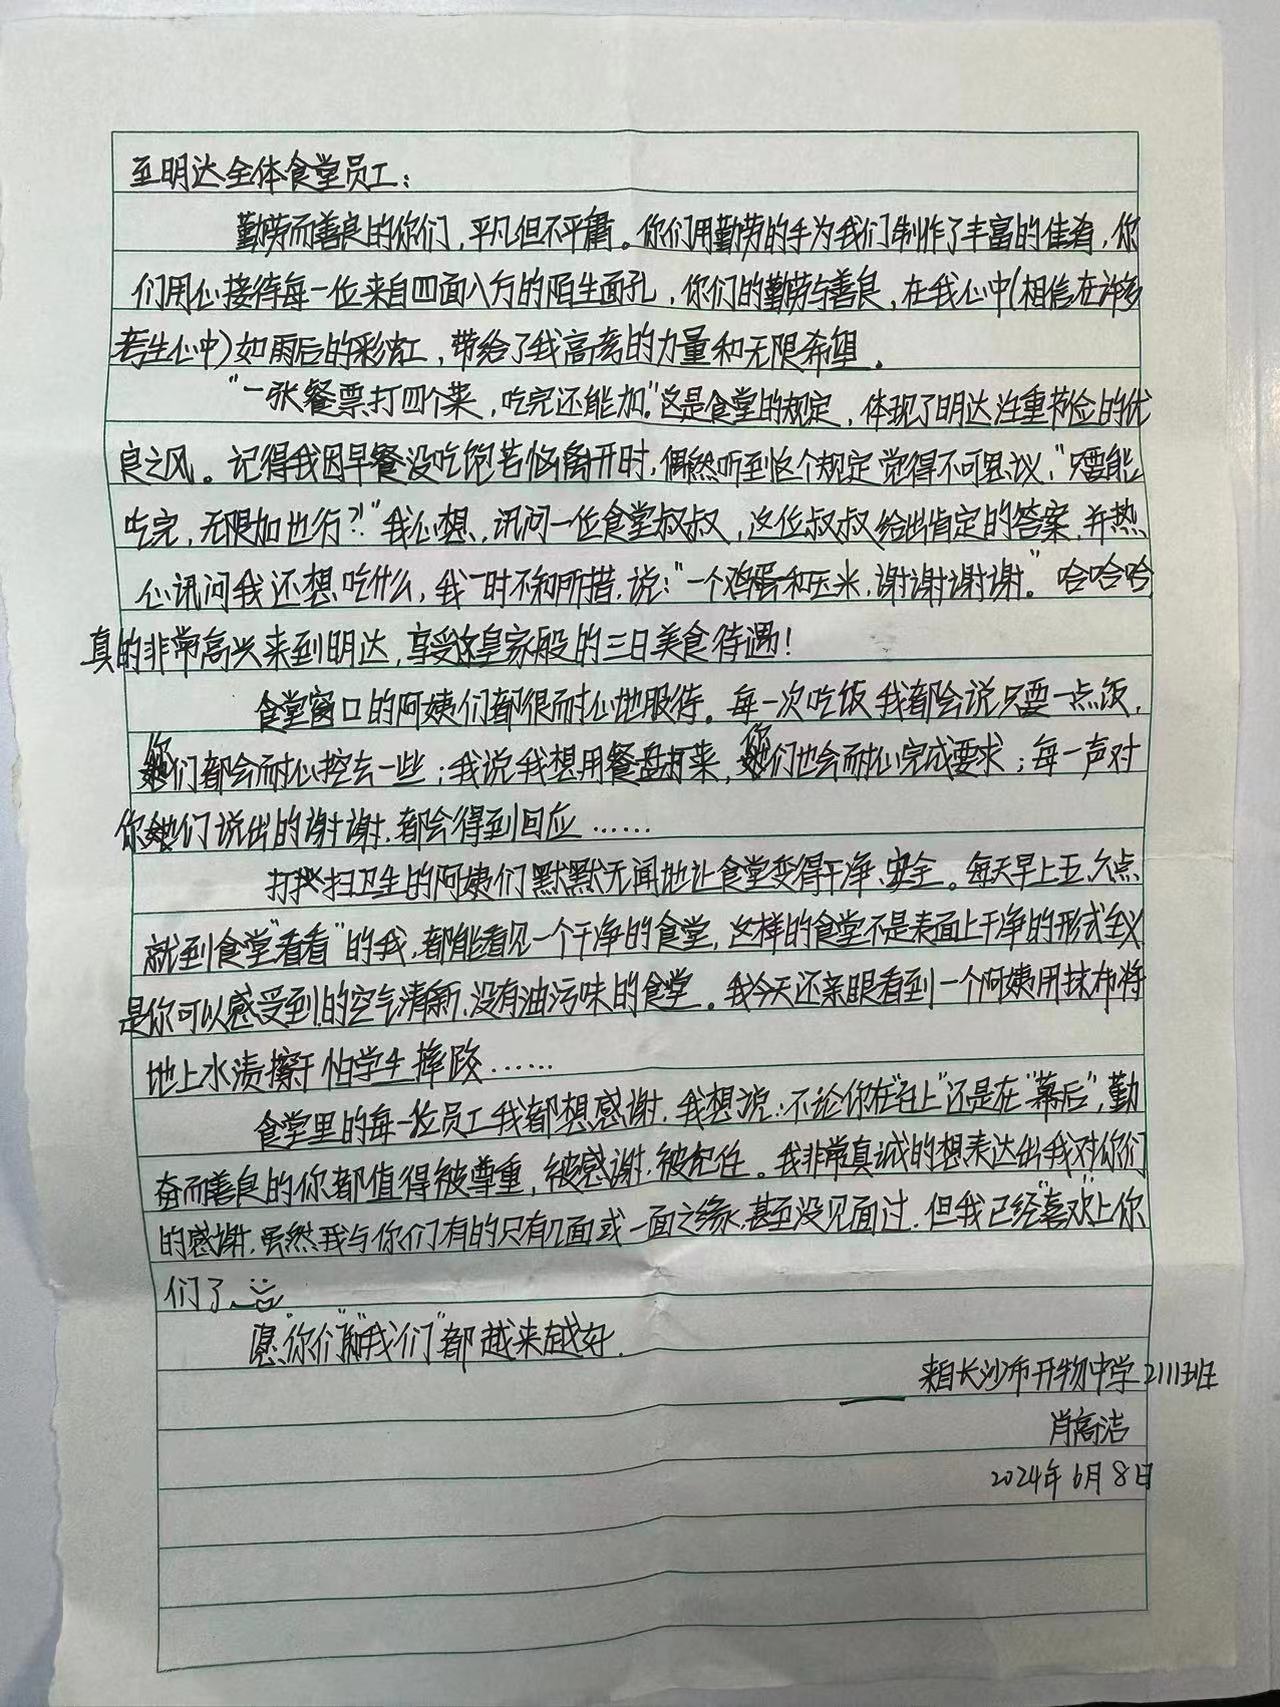 至明达全体食堂员工：
勤劳而善良的你们，平凡但不平庸。你们用勤劳的手为我们制作了丰富的佳肴，你
们用心接待每一位来自四面八方的陌生面孔，你们的勤劳与善良，在我心中(相信在许多
考生心中)如雨后的彩虹，带给了我高考的力量和无限希望。
"一张餐票打四个菜，吃完还能加。"这是食堂的规定，体现了明达注重节俭的优
良之风。记得我因早餐没吃饱苦恼离开时，偶然听到这个规定觉得不可思议，"只要能
吃完，无限加也行?!"我心想，讯问一位食堂叔叔，这位叔叔给出肯定的答案，并热
心讯问我还想吃什么，我一时不知所措，说："一个鸡蛋和玉米，谢谢谢谢。"哈哈哈
真的非常高兴来到明达，享受这皇家般的三日美食待遇！
食堂窗口的阿姨们都很耐心地服侍。每一次吃饭我都会说只要一点饭，
你们都会耐心挖去一些；我说我想用餐盘打来，你们也会耐心完成要求；每一声对
你们说出的谢谢，都会得到回应……
打扫卫生的阿姨们默默无闻地让食堂变得干净、安全。每天早上五、六点
就到食堂"看看"的我，都能看见一个干净的食堂，这样的食堂不是表面上干净的形式主义
是你可以感受到的空气清新，没有油污味的食堂。我今天还亲眼看到一个阿姨用抹布将
地上水渍擦干怕学生摔跤……
食堂里的每一位员工我都想感谢，我想说：不论你在"台上"还是在"幕后"，勤
奋而善良的你都值得被尊重，被感谢，被记住。我非常真诚的想表达出我对你们
的感谢，虽然我与你们有的只有几面或一面之缘，甚至没见面过，但我已经"喜欢"上你
们了
愿"你们"和"我们"都越来越好.
来自长沙市开物中学2111班
肖高洁
2024年6月8日